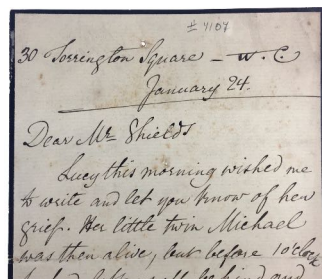 # 4107
30 Torrington Square — W.C
January 24.
Dear Mr. Shields
Lucy this morning wished me
to write and let you know of her
grief. Her little twin Michael
was then alive, but before 1 o'clock